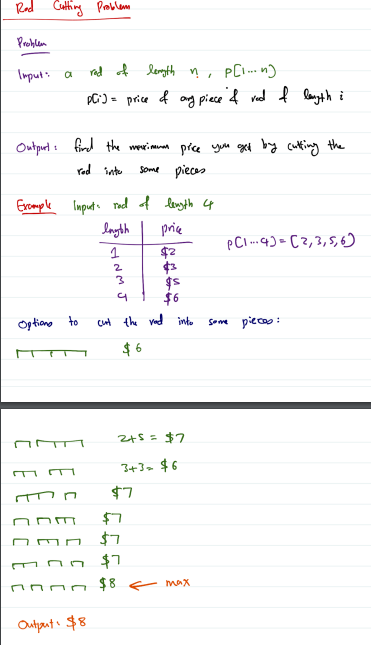 Rod Cutting Problem
Problem
Input: a rod of length n, p[1...n]
p[i] = price of any piece of rod of length i
Output: find the maximum price you get by cutting the
rod into some pieces
Example Input: rod of length 4
length price
1 $2
2 $3
3 $5
4 $6
p[1...4] = [2,3,5,6]
Options to cut the rod into some pieces:
$6
2+5 = $7
3+3 = $6
$7
$7
$7
$7
$8 ← max
Output: $8